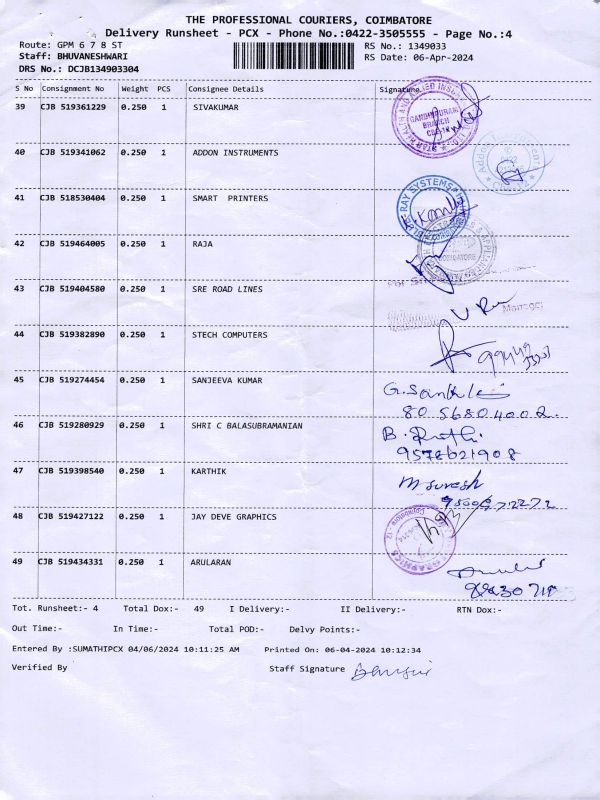 THE PROFESSIONAL COURIERS, COIMBATORE
Delivery Runsheet - PCX - Phone No.:0422-3505555 - Page No.:4
Route: GPM 6 7 8 ST
RS No.: 1349033
Staff: BHUVANESHWARI
RS Date: 06-Apr-2024
DRS No.: DCJB134903304
S No Consignment No Weight PCS Consignee Details Signature
39 CJB 519361229 0.250 1 SIVAKUMAR
GANDHIPURAM
BRANCH
40 CJB 519341062 0.250 1 ADDON INSTRUMENTS
41 CJB 518530404 0.250 1 SMART PRINTERS
42 CJB 519464005 0.250 1 RAJA
43 CJB 519404580 0.250 1 SRE ROAD LINES
Manager
44 CJB 519382890 0.250 1 STECH COMPUTERS
45 CJB 519274454 0.250 1 SANJEEVA KUMAR
8056804002
46 CJB 519280929 0.250 1 SHRI C BALASUBRAMANIAN
9578621908
47 CJB 519398540 0.250 1 KARTHIK
M Suresh
48 CJB 519427122 0.250 1 JAY DEVE GRAPHICS
49 CJB 519434331 0.250 1 ARULARAN
Tot. Runsheet:- 4 Total Dox:- 49 I Delivery:- II Delivery:- RTN Dox:-
Out Time:- In Time:- Total POD:- Delvy Points:-
Entered By :SUMATHIPCX 04/06/2024 10:11:25 AM Printed On: 06-04-2024 10:12:34
Verified By Staff Signature